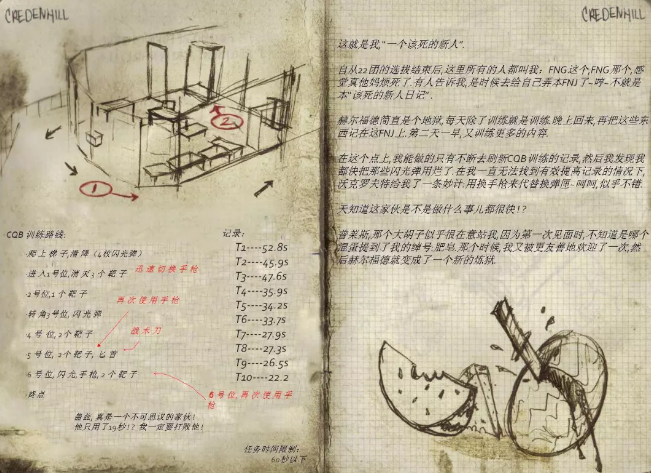 CREDENHILL
CQB 训练路线:
爬上梯子,潜降 (4枚闪光弹)
进入1号位,消灭3个靶子
迅速切换手枪
2号位,1个靶子
再次使用手枪
转角3号位,闪光弹
战术刀
4号位,2个靶子
5号位,2个靶子,匕首
6号位,闪光手枪,2个靶子
6号位,再次使用手
枪
终点
记录:
T1----52.8s
T2----45.9s
T3----47.6s
T4----35.9s
T5----34.2s
T6----33.7s
T7----27.9s
T8----27.3s
T9----26.5s
T10----22.2
兽,真是一个不可思议的家伙!
他只用了19秒!? 我一定要打败他!
任务时间限制:
60秒以下
1
2
CREDENHILL
这就是我"一个该死的新人".
自从22团的选拔结束后,这里所有的人都叫我:FNG这个,FNG那个,感
觉真他妈烦死了.有人告诉我,是时候去给自己弄本FNJ了-哼-不就是
本"该死的新人日记".
赫尔福德简直是个地狱,每天除了训练就是训练.晚上回来,再把这些东
西记在这FNJ上.第二天一早,又训练更多的内容.
在这个点上,我能做的只有不断去刷新CQB训练的记录,然后我发现我
都快把那些闪光弹用烂了.在我一直无法找到有效提高记录的情况下,
沃克罗夫特给我了一条妙计:用换手枪来代替换弹匣--呵呵,似乎不错.
天知道这家伙是不是做什么事儿都很快!?
普莱斯,那个大胡子似乎很在意姑我,因为第一次见面时,不知道是哪个
混蛋提到了我的绰号:肥皂.那个时候,我又被更友善地欢迎了一次,然
后赫尔福德就变成了一个新的炼狱.